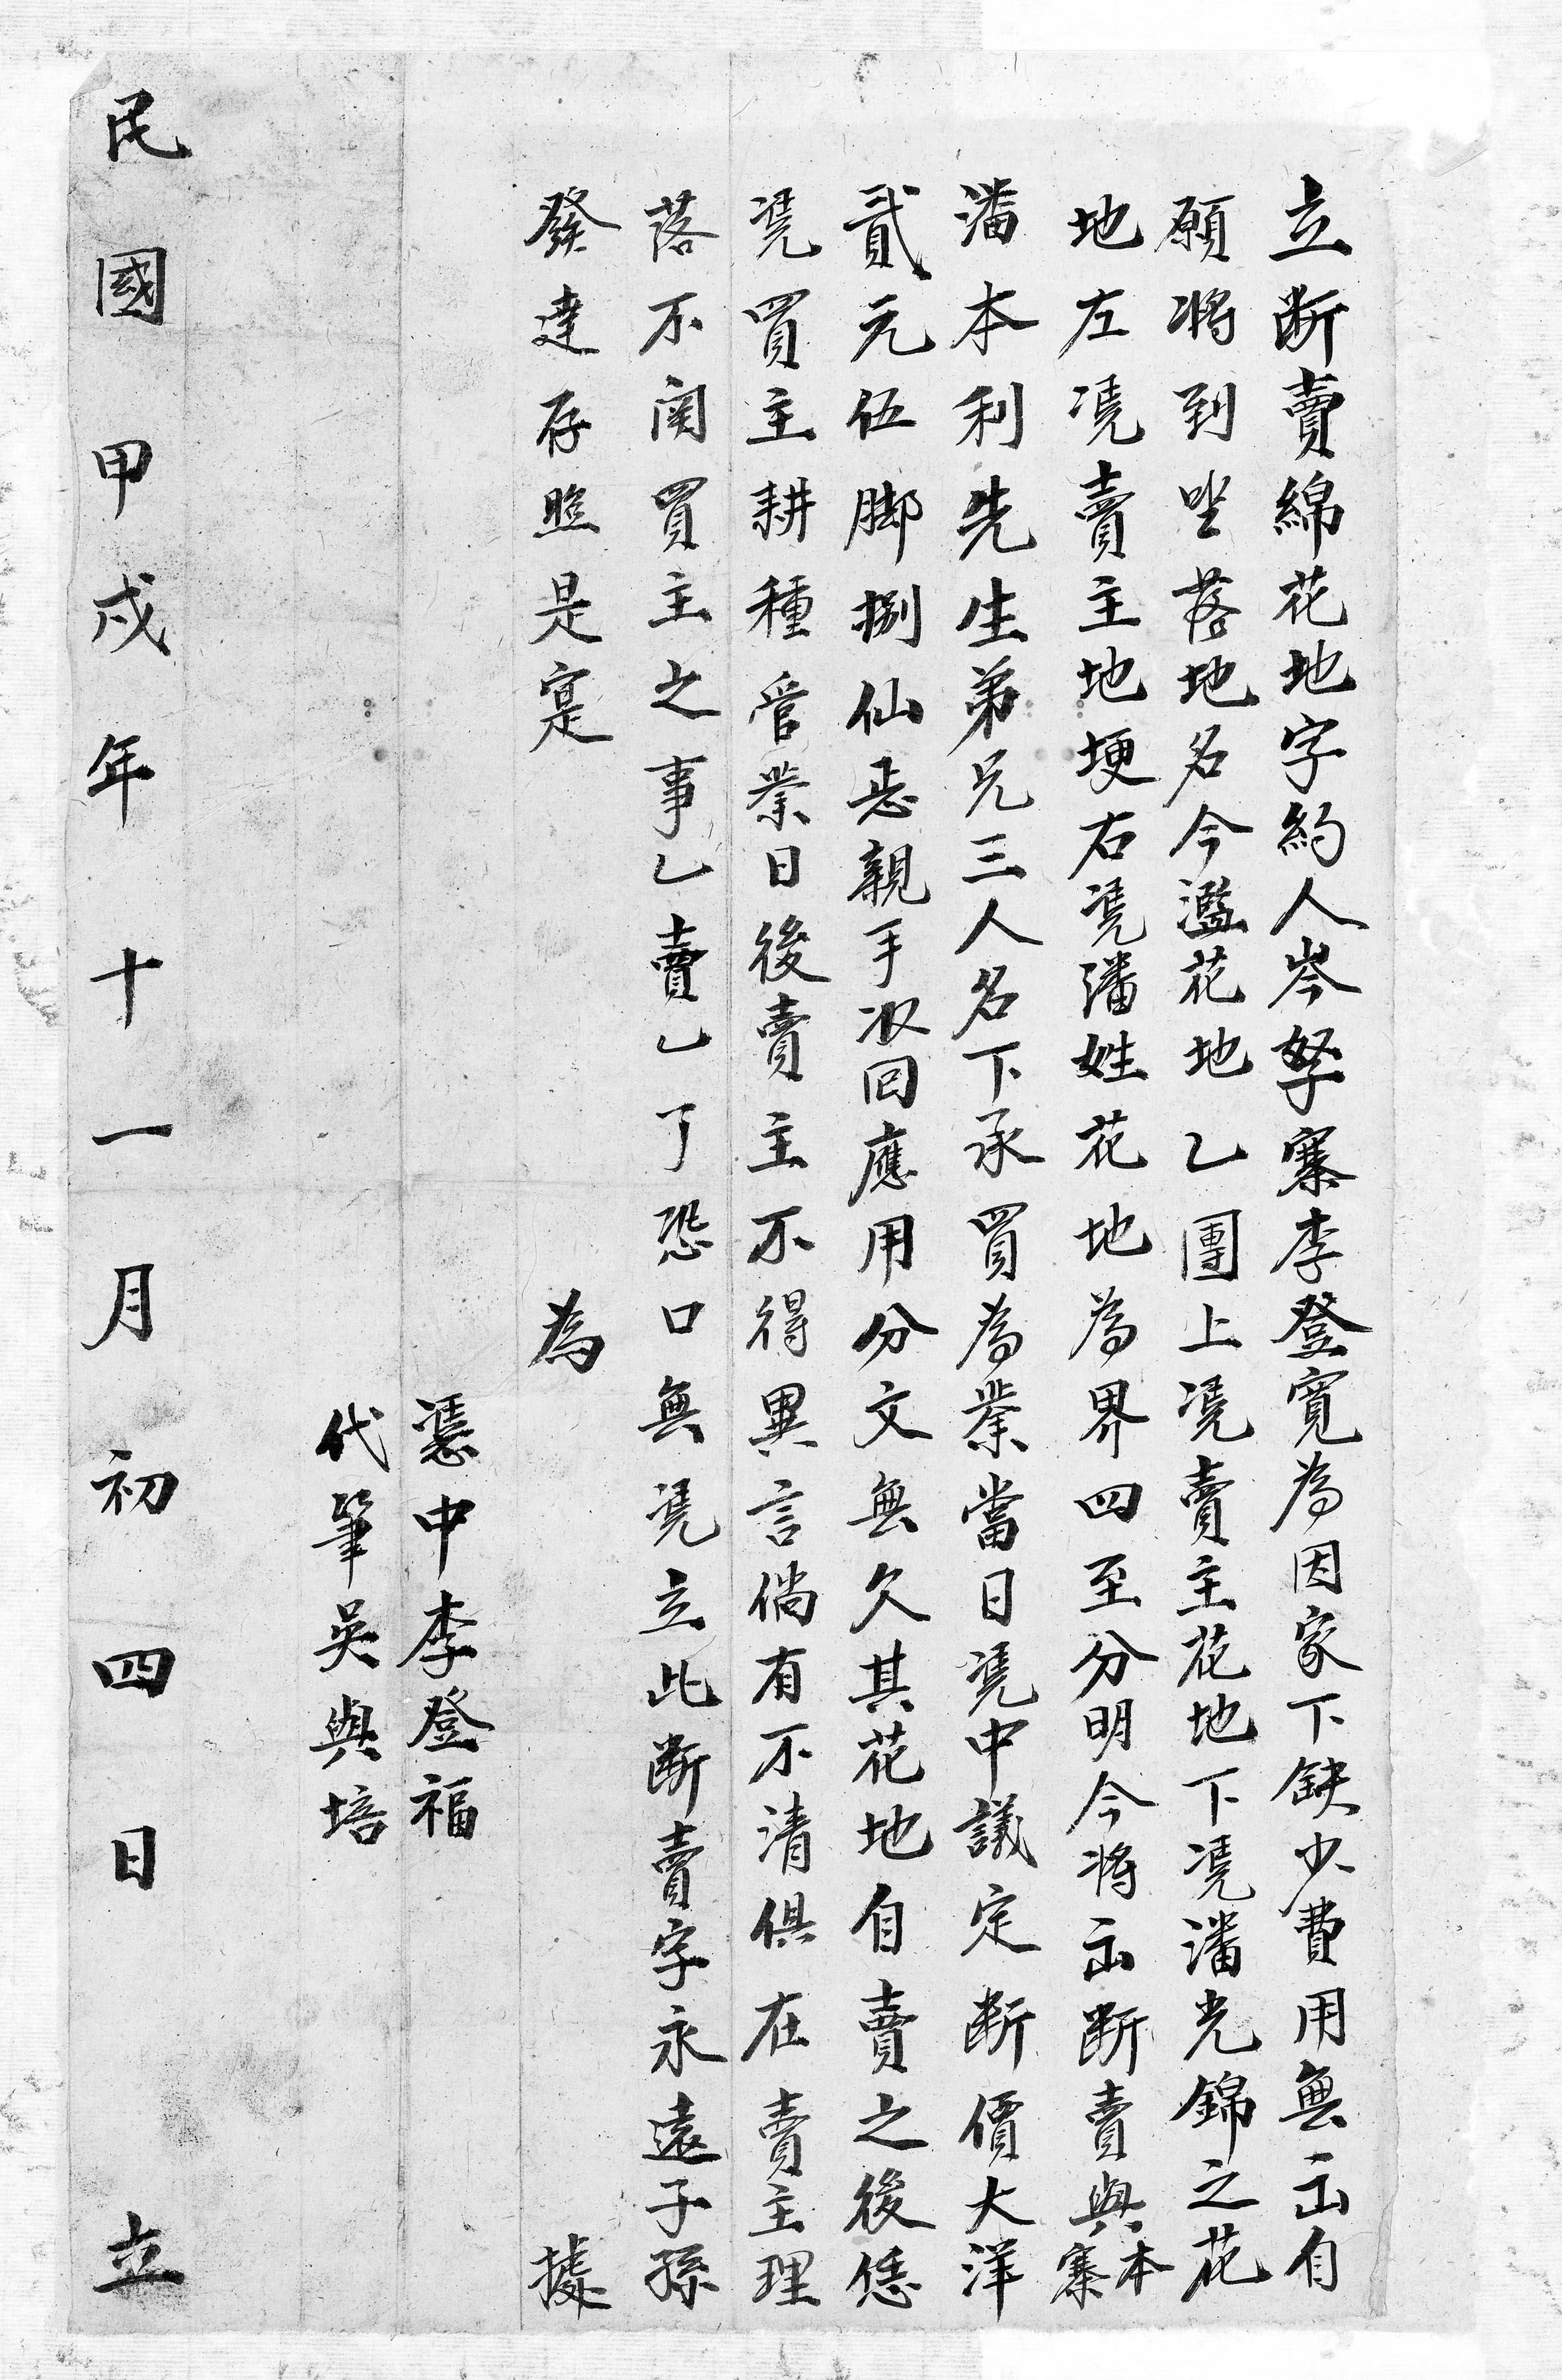 立断賣綿花地字約人岑孥寨李登寬為因家下缺少費用無出自
願将到坐落地名今濫花地乙團上凴賣主花地下凴潘光錦之花
地左凴賣主地埂右凴潘姓花地為界四至分明今将出断賣與本寨
潘本利先生弟兄三人名下承買為業當日凴中議定断價大洋
貳元伍脚捌仙悉親手收回應用分文無欠其花地自賣之後恁
凴買主耕種管業日後賣主不得異言倘有不清俱在賣主理
落不関買主之事乙賣乙了恐口無凴立此断賣字永遠子孫
發達存照是寔 為 據
憑中李登福
代筆吳與培
民國甲戍年十一月初四日 立